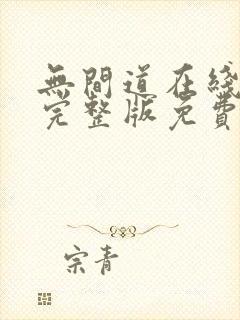 無間道在綫
完整版免費
宗青